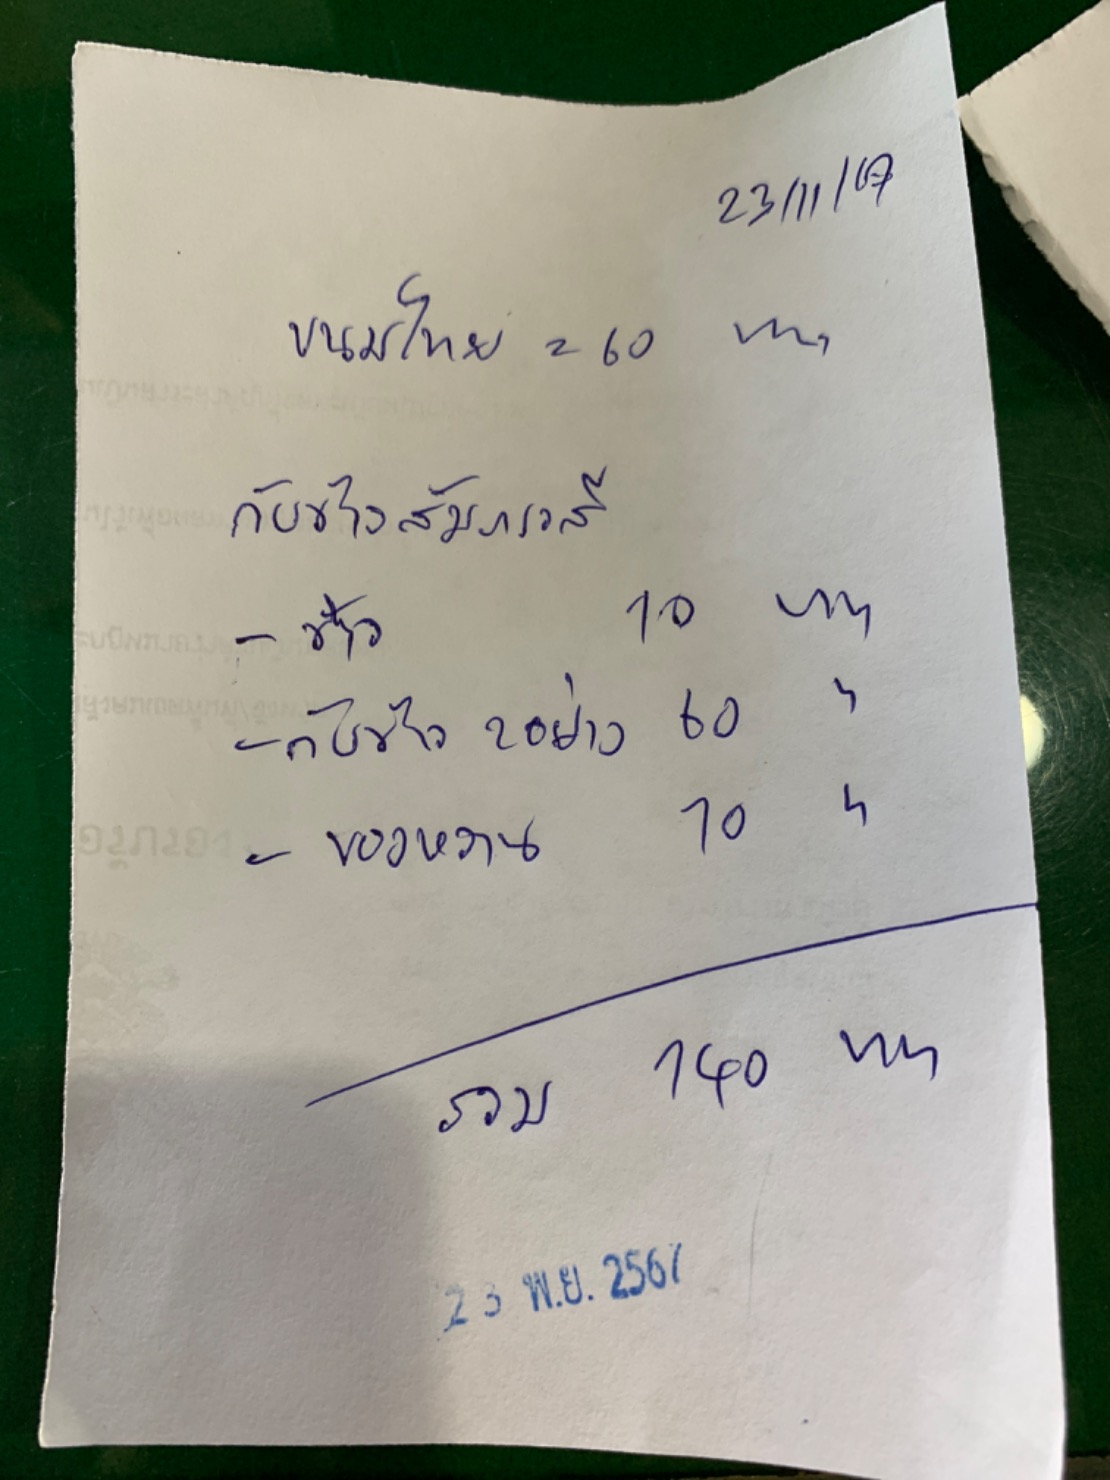 23/11/67
ขนมไทย = 60 บาท
กับข้าว
- ข้าว 10 บาท
- กับข้าว 2 อย่าง 60 "
- ของหวาน 10 "
รวม 140 บาท
23 พ.ย. 2567